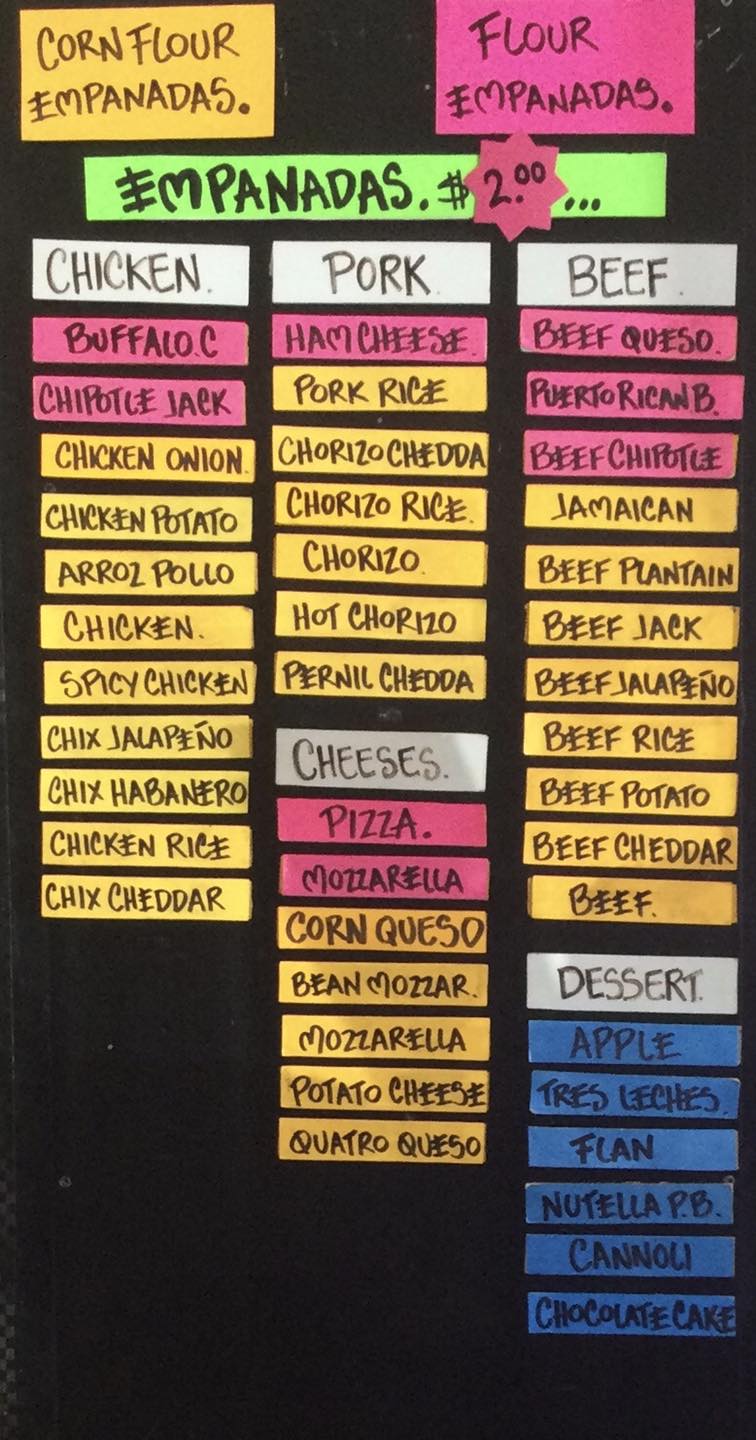 CORN FLOUR
EMPANADAS.
FLOUR
EMPANADAS.
EMPANADAS. $2.00...
CHICKEN.
BUFFALO.C
CHIPOTLE JACK
CHICKEN ONION.
CHICKEN POTATO
ARROZ POLLO
CHICKEN.
SPICY CHICKEN
CHIX JALAPEÑO
CHIX HABANERO
CHICKEN RICE
CHIX CHEDDAR
PORK
HAM CHEESE.
PORK RICE
CHORIZO CHEDDA
CHORIZO RICE.
CHORIZO.
HOT CHORIZO
PERNIL CHEDDA
CHEESES.
PIZZA.
MOZZARELLA
CORN QUESO
BEAN MOZZAR.
MOZZARELLA
POTATO CHEESE
QUATRO QUESO
BEEF.
BEEF QUESO.
PUERTO RICAN B.
BEEF CHIPOTLE
JAMAICAN
BEEF PLANTAIN
BEEF JACK
BEEF JALAPEÑO
BEEF RICE
BEEF POTATO
BEEF CHEDDAR
BEEF.
DESSERT.
APPLE
TRES LECHES.
FLAN
NUTELLA P.B.
CANNOLI
CHOCOLATE CAKE